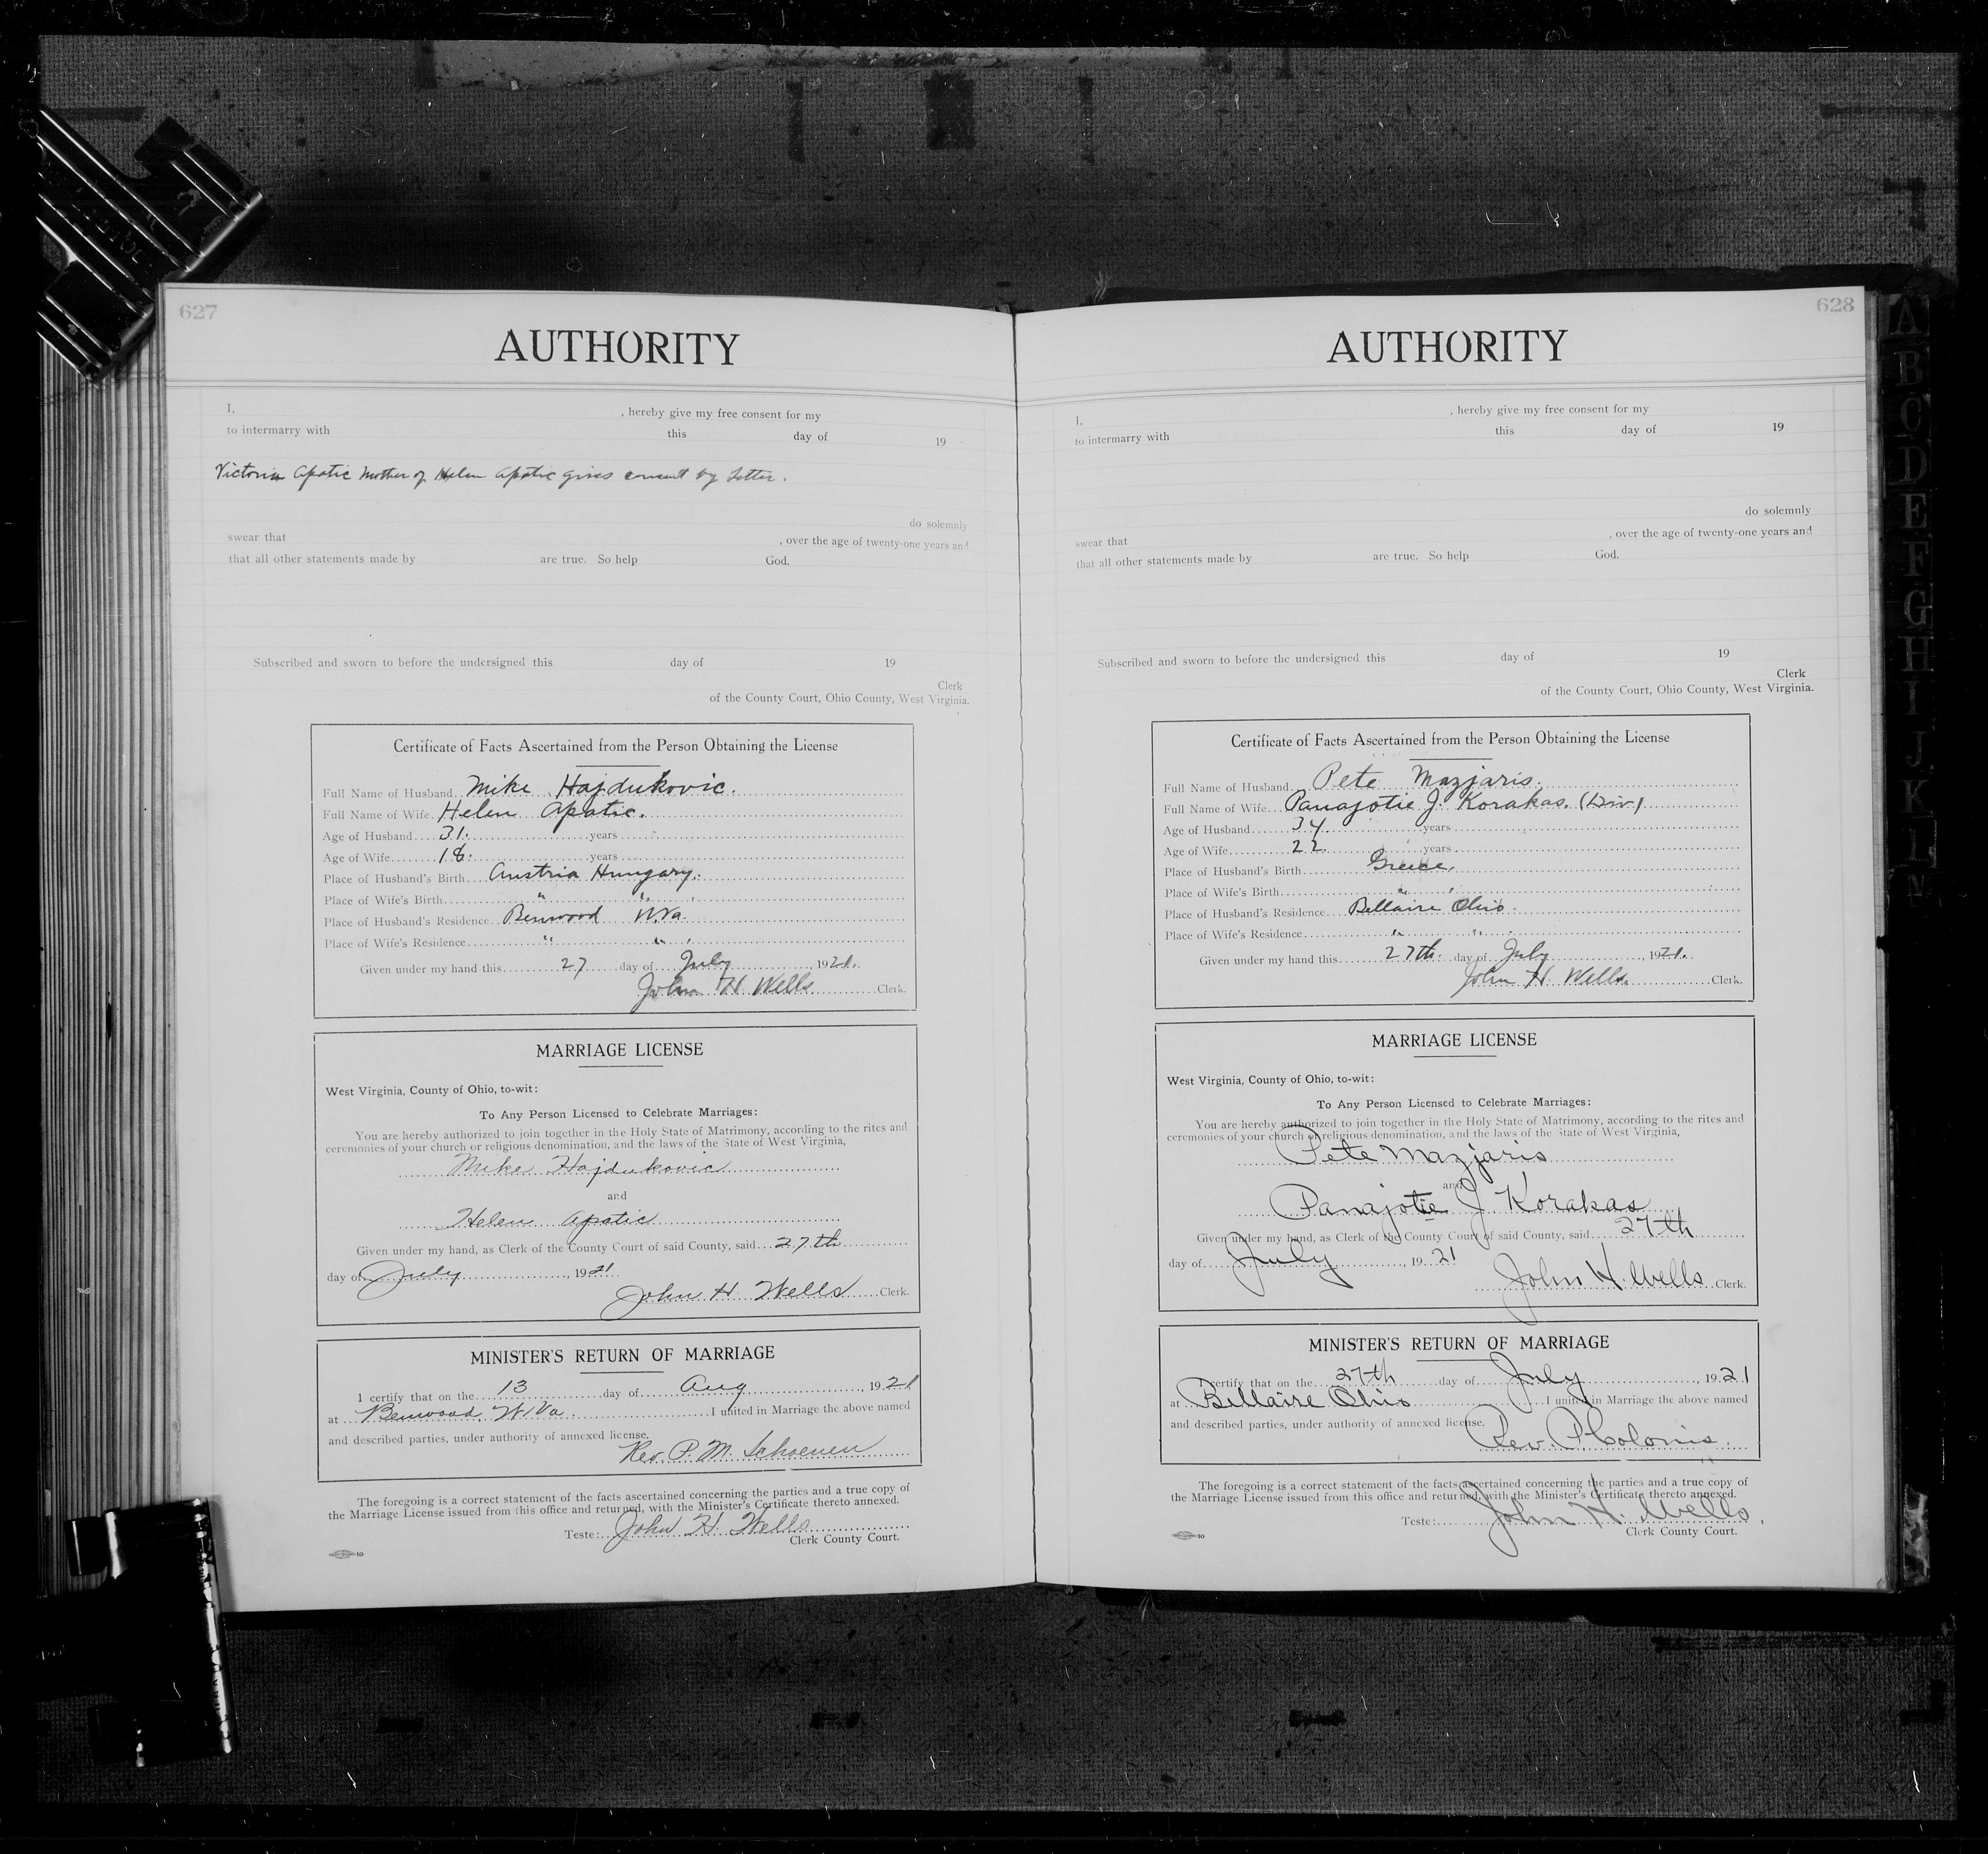 627
AUTHORITY
I, , hereby give my free consent for my
to intermarry with this day of 19
Victoria Apatic Mother of Helen Apatic gives consent by letter.
do solemnly
swear that , over the age of twenty-one years and
that all other statements made by are true. So help God.
Subscribed and sworn to before the undersigned this day of 19
Clerk
of the County Court, Ohio County, West Virginia.
Certificate of Facts Ascertained from the Person Obtaining the License
Full Name of Husband Mike Hajdukovic.
Full Name of Wife Helen Apatic.
Age of Husband 31. years
Age of Wife 18. years
Place of Husband's Birth Austria Hungary.
Place of Wife's Birth " "
Place of Husband's Residence Benwood W.Va.
Place of Wife's Residence " "
Given under my hand this 27 day of July, 1921.
John H. Wells Clerk.
MARRIAGE LICENSE
West Virginia, County of Ohio, to-wit:
To Any Person Licensed to Celebrate Marriages:
You are hereby authorized to join together in the Holy State of Matrimony, according to the rites and
ceremonies of your church or religious denomination, and the laws of the State of West Virginia,
Mike Hajdukovic
and
Helen Apatic
Given under my hand, as Clerk of the County Court of said County, said 27th
day of July, 1921
John H Wells Clerk.
MINISTER'S RETURN OF MARRIAGE
I certify that on the 13 day of Aug, 1921
at Benwood, W.Va. I united in Marriage the above named
and described parties, under authority of annexed license.
Rev. P. M. Schoenen
The foregoing is a correct statement of the facts ascertained concerning the parties and a true copy of
the Marriage License issued from this office and returned, with the Minister's Certificate thereto annexed.
Teste: John H. Wells
Clerk County Court.
628
AUTHORITY
I, , hereby give my free consent for my
to intermarry with this day of 19
do solemnly
swear that , over the age of twenty-one years and
that all other statements made by are true. So help God.
Subscribed and sworn to before the undersigned this day of 19
Clerk
of the County Court, Ohio County, West Virginia.
Certificate of Facts Ascertained from the Person Obtaining the License
Full Name of Husband Pete Mazjaris.
Full Name of Wife Panajotie J. Korakas. (Div)
Age of Husband 34 years
Age of Wife 22 years
Place of Husband's Birth Greece.
Place of Wife's Birth "
Place of Husband's Residence Bellaire Ohio.
Place of Wife's Residence " "
Given under my hand this 27th. day of July, 1921.
John H. Wells. Clerk.
MARRIAGE LICENSE
West Virginia, County of Ohio, to-wit:
To Any Person Licensed to Celebrate Marriages:
You are hereby authorized to join together in the Holy State of Matrimony, according to the rites and
ceremonies of your church or religious denomination, and the laws of the State of West Virginia,
Pete Mazjaris
and
Panajotie J Korakas
Given under my hand, as Clerk of the County Court of said County, said 27th
day of July, 19 21
John H. Wells Clerk.
MINISTER'S RETURN OF MARRIAGE
certify that on the 27th day of July, 1921
at Bellaire Ohio I united in Marriage the above named
and described parties, under authority of annexed license.
Rev. P. Colonis.
The foregoing is a correct statement of the facts ascertained concerning the parties and a true copy of
the Marriage License issued from this office and returned, with the Minister's Certificate thereto annexed.
Teste: John H. Wells.
Clerk County Court.
A
B
C
D
E
F
G
H
I
J
K
L